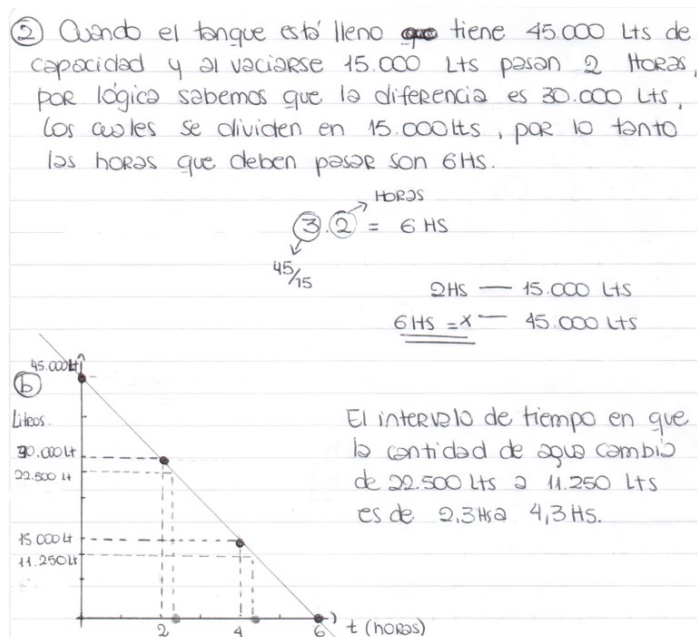 2 Cuando el tanque está lleno tiene 45.000 Lts de
capacidad y al vaciarse 15.000 Lts pasan 2 Horas,
por lógica sabemos que la diferencia es 30.000 Lts,
los cuales se dividen en 15.000lts, por lo tanto
las horas que deben pasar son 6Hs.
HORAS
3.2 = 6 HS
45/15
2HS — 15.000 Lts
6HS = x — 45.000 Lts
45.000Lt
b
Litros.
30.000Lt
22.500 Lt
15.000Lt
11.250Lt
2 4 6 t (horas)
El intervalo de tiempo en que
la cantidad de agua cambio
de 22.500 Lts a 11.250 Lts
es de 2,3Hs a 4,3Hs.